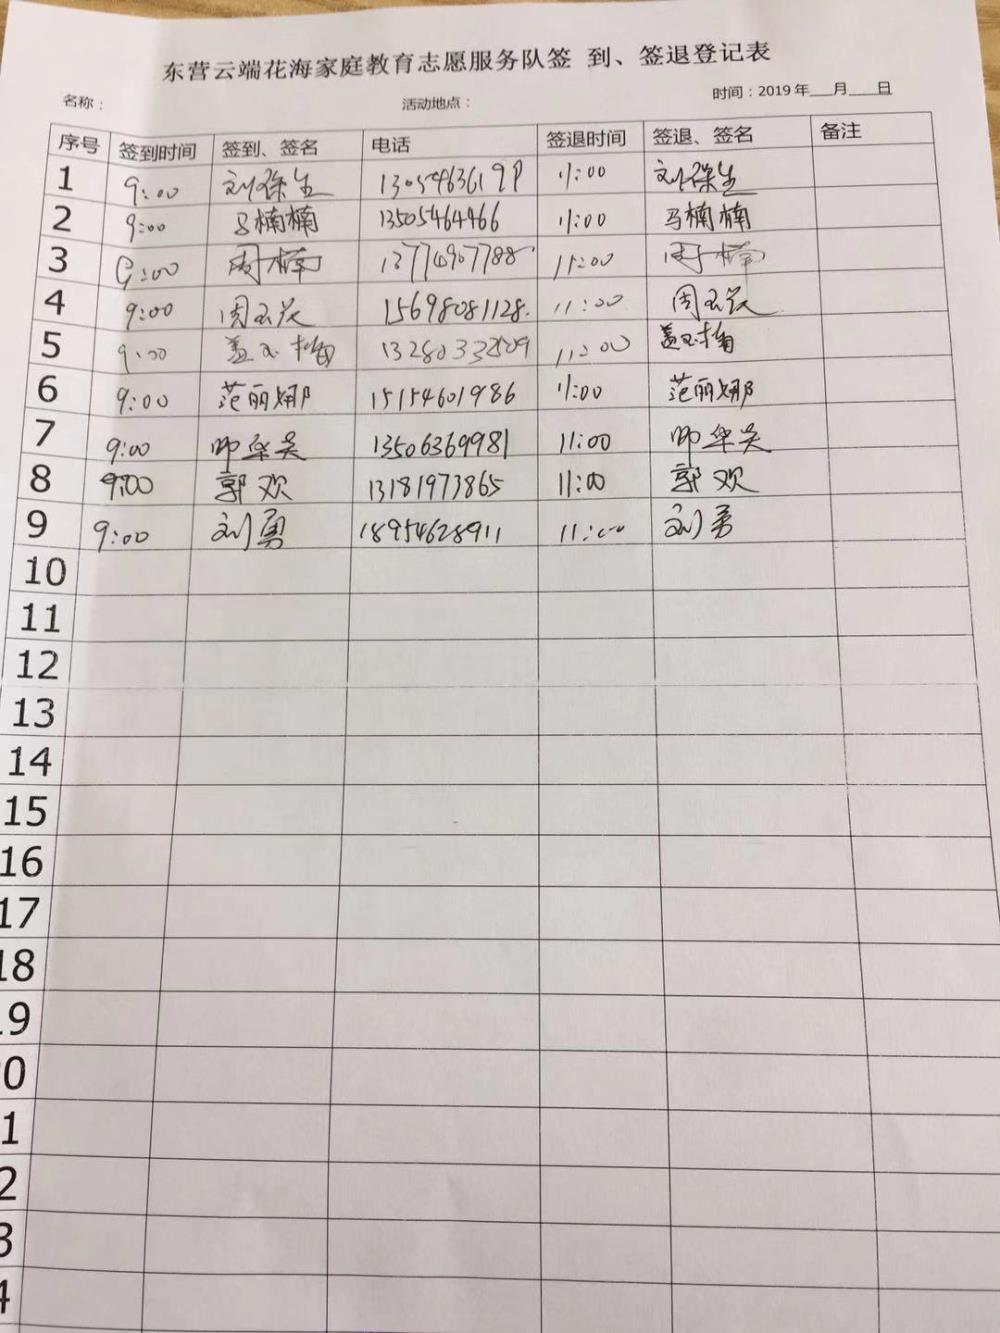 东营云端花海家庭教育志愿服务队签 到、签退登记表
名称： 活动地点： 时间：2019年___月___日
序号 签到时间 签到、签名 电话 签退时间 签退、签名 备注
1 9:00 刘保生 11:00 刘保生
2 9:00 马楠楠 13505464466 11:00 马楠楠
3 9:00 周楠 13774907788 11:00 周楠
4 9:00 周玉花 15698081128. 11:00 周玉花
5 9:00 盖玉梅 11:00 盖玉梅
6 9:00 范丽娜 15154601986 11:00 范丽娜
7 9:00 华吴 13506369981 11:00 华吴
8 9:00 郭欢 13181973865 11:00 郭欢
9 9:00 刘勇 18954628911 11:00 刘勇
10
11
12
13
14
15
16
17
18
19
0
1
2
3
4